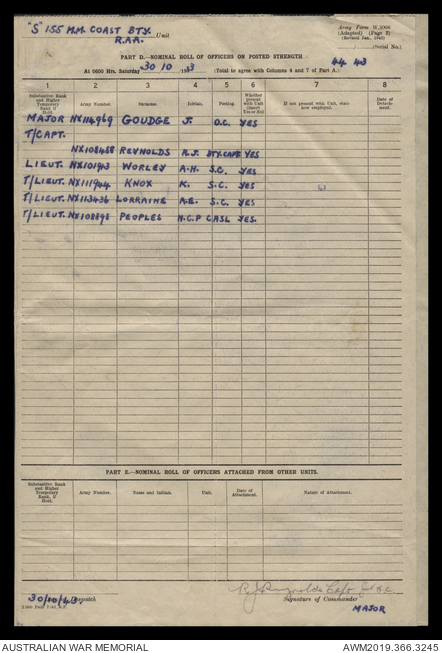 "S" 155 M.M. COAST BTY. Unit
R.A.A.
Army Form W.3008
(Adapted) (Page 2)
(Serial No.)
PART D.—NOMINAL ROLL OF OFFICERS ON POSTED STRENGTH
44 43
At 0600 Hrs. Saturday 30/10/1943 (Total to agree with Columns 4 and 7 of Part A.)
1 2 3 4 5 6 7 8
Substantive Rank and Higher Temporary Rank if Held. Army Number. Surname. Initials. Posting. Whether present with Unit (Insert Yes or No) If not present with Unit, state how employed. Date of Detachment.
MAJOR NX114969 GOUDGE J. O.C. YES
T/CAPT.
NX108488 REYNOLDS R.J. BTY.CAPT. YES
LIEUT. NX101943 WORLEY A.H. S.C. YES
T/LIEUT. NX111944 KNOX K. S.C. YES
T/LIEUT. NX113436 LORRAINE A.E. S.C. YES
T/LIEUT. NX108898 PEOPLES H.C.P CASL YES.
PART E.—NOMINAL ROLL OF OFFICERS ATTACHED FROM OTHER UNITS.
Substantive Rank and Higher Temporary Rank, if Held. Army Number. Name and Initials. Unit. Date of Attachment. Nature of Attachment.
30/10/43. Despatch
R J Reynolds Capt
Signature of Commander
MAJOR
AUSTRALIAN WAR MEMORIAL
AWM2019.366.3245